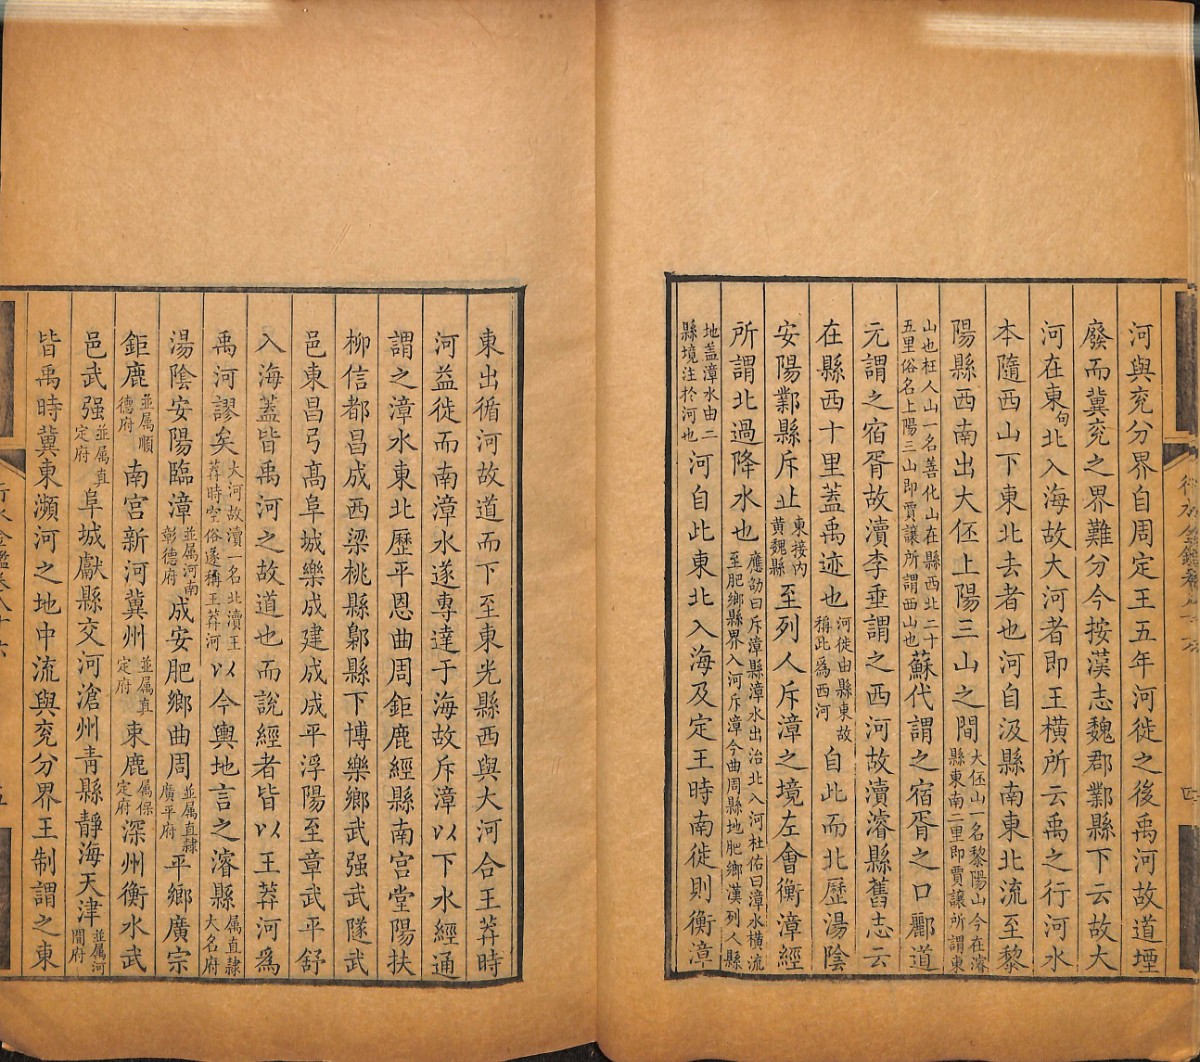 河與兖分界自周定王五年河徙之後禹河故道堙
廢而冀兖之界難分今按漢志魏郡鄴縣下云故大
河在東句北入海故大河者即王橫所云禹之行河水
本隨西山下東北去者也河自汲縣南東北流至黎
陽縣西南出大伾上陽三山之間大伾山一名黎陽山今在濬縣東南二里即賈讓所謂東
山也枉人山一名善化山在縣西北二十五里俗名上陽三山即賈讓所謂西山也蘇代謂之宿胥之口酈道
元謂之宿胥故瀆李垂謂之西河故瀆濬縣舊志云
在縣西十里蓋禹迹也河徙由縣東故稱此為西河自此而北歷湯陰
安陽鄴縣斥丘東接內黃魏縣至列人斥漳之境左會衡漳經
所謂北過降水也應劭曰斥漳縣漳水出治北入河杜佑曰漳水橫流至肥鄉縣界入河斥漳今曲周縣地肥鄉漢列人縣
地蓋漳水由二縣境注於河也河自此東北入海及定王時南徙則衡漳
行水金鑑卷八十六
四
東出循河故道而下至東光縣西與大河合王莽時
河益徙而南漳水遂專達于海故斥漳以下水經通
謂之漳水東北歷平恩曲周鉅鹿經縣南宮堂陽扶
柳信都昌成西梁桃縣鄡縣下博樂鄉武强武隧武
邑東昌弓高阜城樂成建成成平浮陽至章武平舒
入海蓋皆禹河之故道也而說經者皆以王莽河為
禹河謬矣大河故瀆一名北瀆王莽時空俗遂稱王莽河以今輿地言之濬縣属直隸大名府
湯陰安陽臨漳並属河南彰德府成安肥鄉曲周並属直隸廣平府平鄉廣宗
鉅鹿並属順德府南宮新河冀州並属真定府束鹿属保定府深州衡水武
邑武强並属真定府阜城獻縣交河滄州青縣靜海天津並属河間府
皆禹時冀東瀕河之地中流與兖分界王制謂之東
行水金鑑卷八十六
五